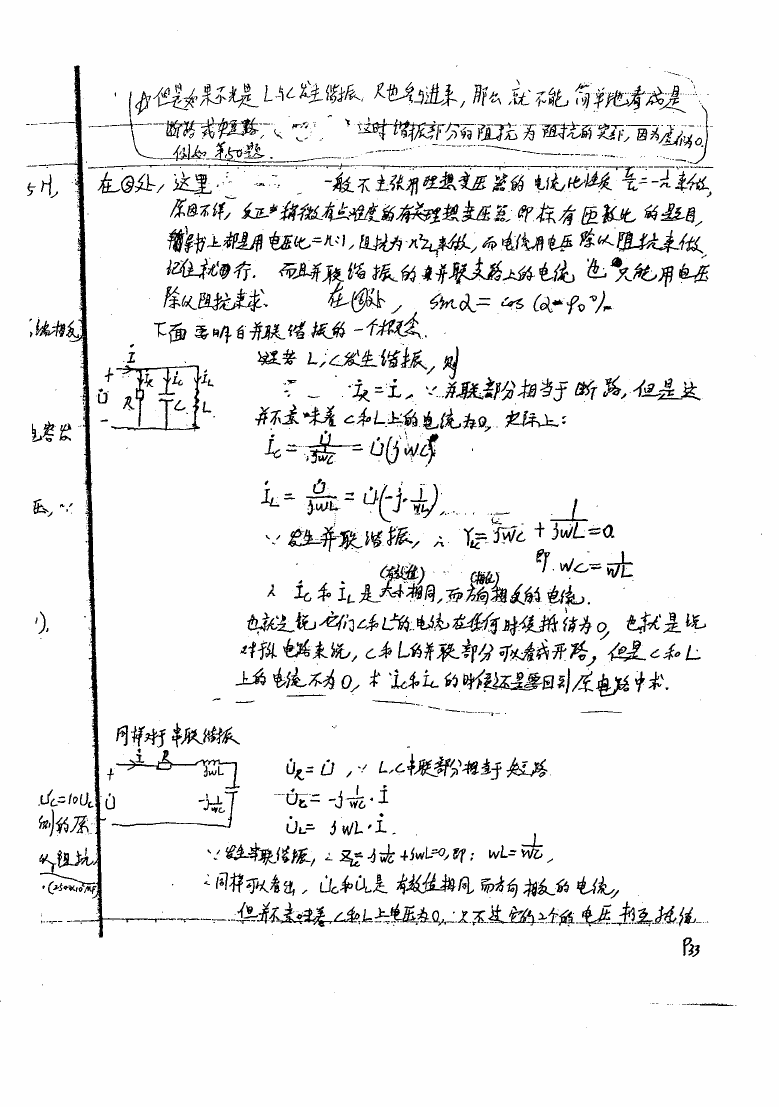 但是如果不光是L与C发生谐振,R也参与进来,那么就不能简单地看成是
断路或短路, 这时谐振部分的阻抗为阻抗的实部,因为虚部为0.
例如第50题.
5H, 在④处,这里 一般不主张用理想变压器的电流比性质 来做,
原因不详,反正稍微有点难度的有关理想变压器即标有匝数比的题目,
辅导书上都是用电压比=n:1,阻抗为n²Z来做,而电流用电压除以阻抗来做,
记住就行. 而且并联谐振的并联支路上的电流也只能用电压
除以阻抗来求. 在 处, sinα = cos(α-90°)
下面要明白并联谐振的一个概念.
İ
+ İR İC İL
U̇ R C L
-
若L,C发生谐振,则
İR=İ,∵并联部分相当于断路,但是这
并不意味着C和L上的电流为0,实际上:
İC = U̇/(1/jwC) = U̇(jwC)
İL = U̇/jwL = U̇(-j·1/wL).
∵发生并联谐振,∴ jwC + 1/jwL = 0
即 wC = 1/wL
(有效值) (相位)
∴ İC和İL是大小相同,而方向相反的电流.
也就是说它们C和L上的电流在任何时候抵结为0,也就是说
对外电路来说,C和L的并联部分可以看成开路,但是C和L
上的电流不为0,求İC和İL的时候还是要回到原电路中求.
同样对于串联谐振
İ R jwL
+
U̇ -j1/wC
-
U̇R=U̇,∵L,C串联部分相当于短路
U̇C= -j1/wC·İ
U̇L= jwL·İ.
∵发生串联谐振,∴ -j1/wC+jwL=0,即:wL=1/wC,
∴同样可以看出,U̇C和U̇L是有效值相同而方向相反的电流,
但并不意味着C和L上电压为0,只不过它们2个的电压相互抵结
P33